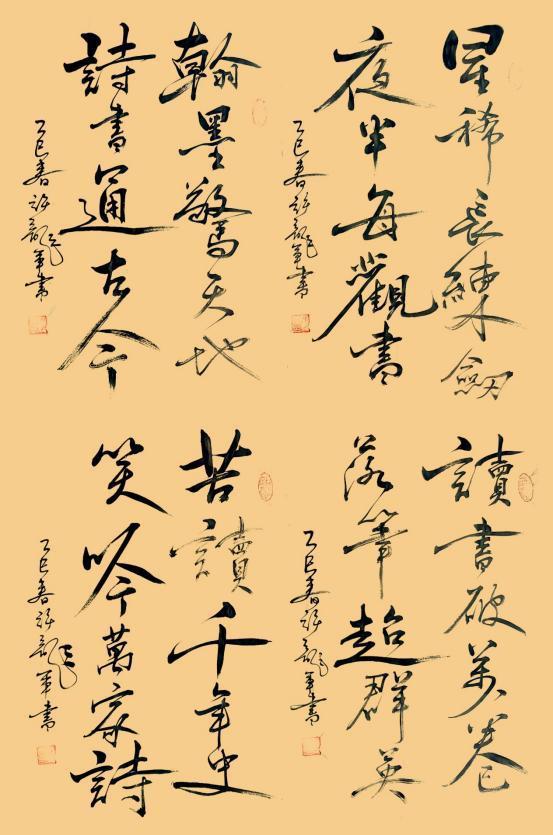 星稀長練劍
夜半每觀書
乙巳春許龍軍書
翰墨驚天地
詩書通古今
乙巳春許龍軍書
讀書破萬卷
落筆超群英
乙巳春許龍軍書
苦讀千年史
笑吟萬家詩
乙巳春許龍軍書